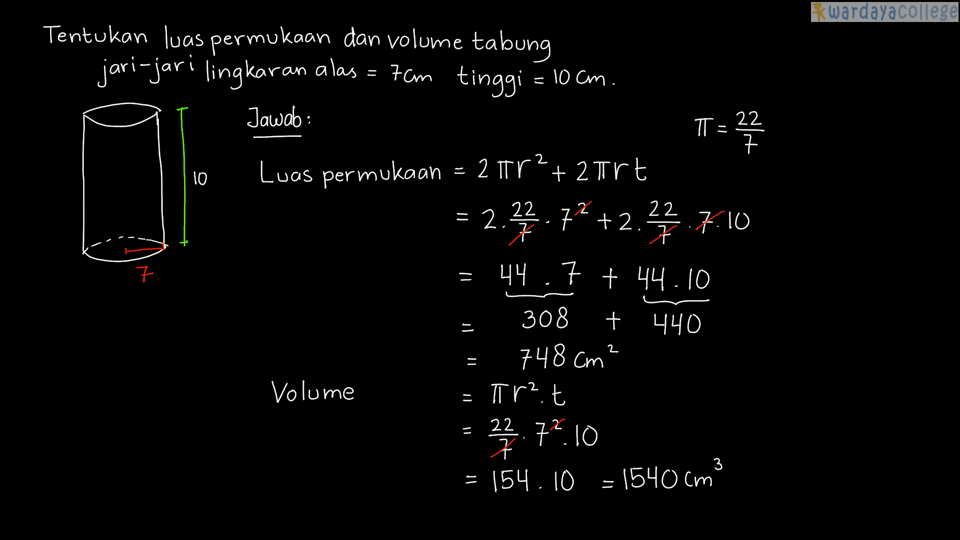 wardayacollege
Tentukan luas permukaan dan volume tabung
jari-jari lingkaran alas = 7cm tinggi = 10 cm.
Jawab:
π = 22/7
10
7
Luas permukaan = 2πr² + 2πrt
= 2. 22/7 . 7² + 2. 22/7 . 7. 10
= 44 . 7 + 44 . 10
= 308 + 440
= 748 cm²
Volume = πr².t
= 22/7 . 7² . 10
= 154 . 10 = 1540 cm³